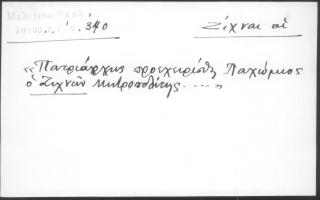 Μελετίου Εκκλ.
Ἱστορ. Γ΄. 340
Ζίχναι αἱ
«Πατριάρχης προεχειρίσθη Παχώμιος
ὁ Ζιχνῶν Μητροπολίτης. ... »